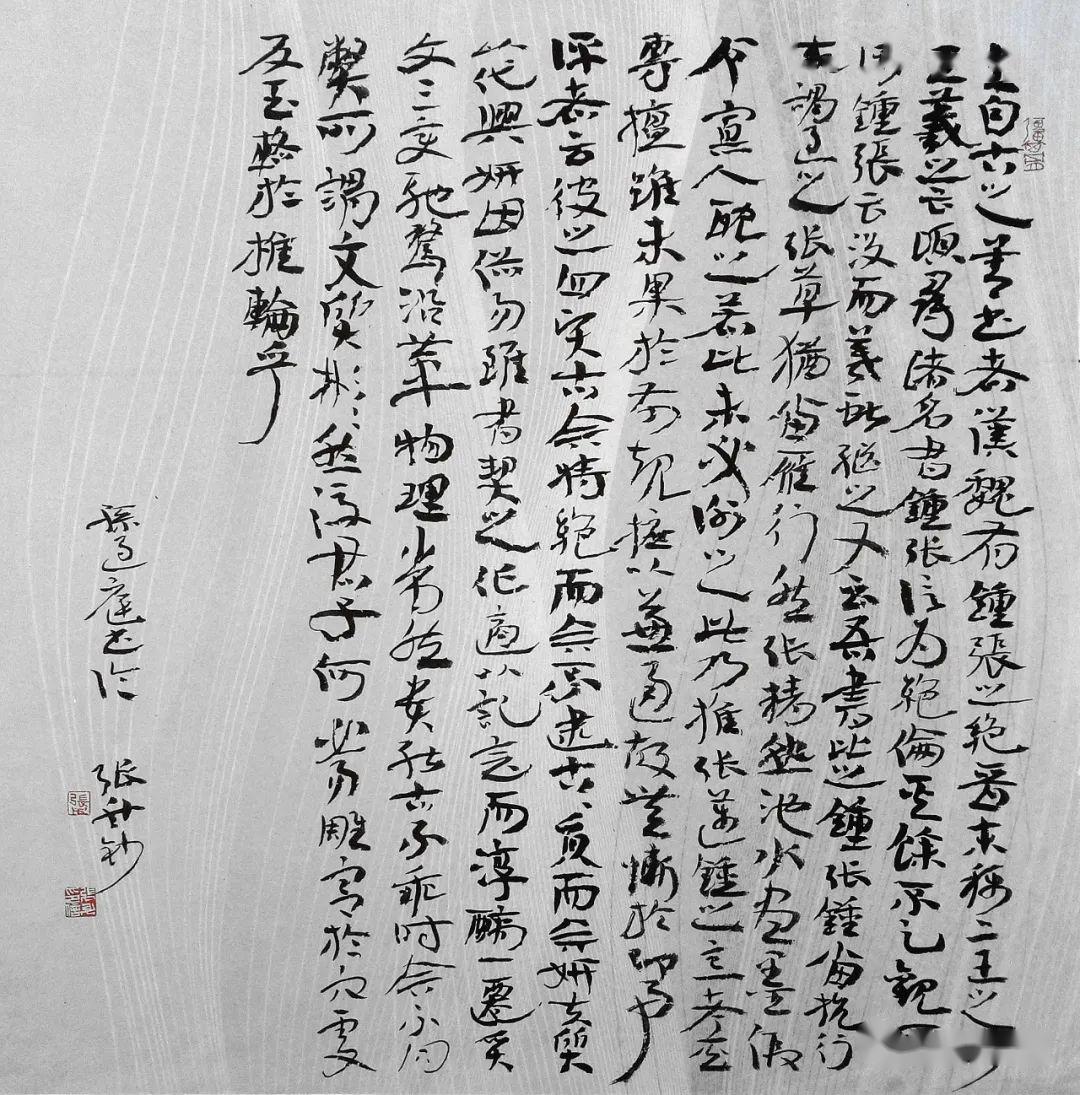 夫自古之善書者漢魏有鍾張之絕晉末稱二王之妙
王羲之云頃尋諸名書鍾張信為絕倫其餘不足觀可
謂鍾張云沒而羲獻繼之又云吾書比之鍾張鍾當抗行
或謂過之張草猶當雁行然張精熟池水盡墨假
令寡人耽之若此未必謝之此乃推張邁鍾之意考其
專擅雖未果於前規摭以兼通故無慚於即事
評者云彼之四賢古今特絕而今不逮古、質而今妍夫質
以代興妍因俗易雖書契之作適以記言而淳醨一遷質
文三變馳騖沿革物理常然貴能古不乖時今不同
弊所謂文質彬、然後君子何必易雕宮於穴處
反玉輅於椎輪乎
孫過庭書論
張